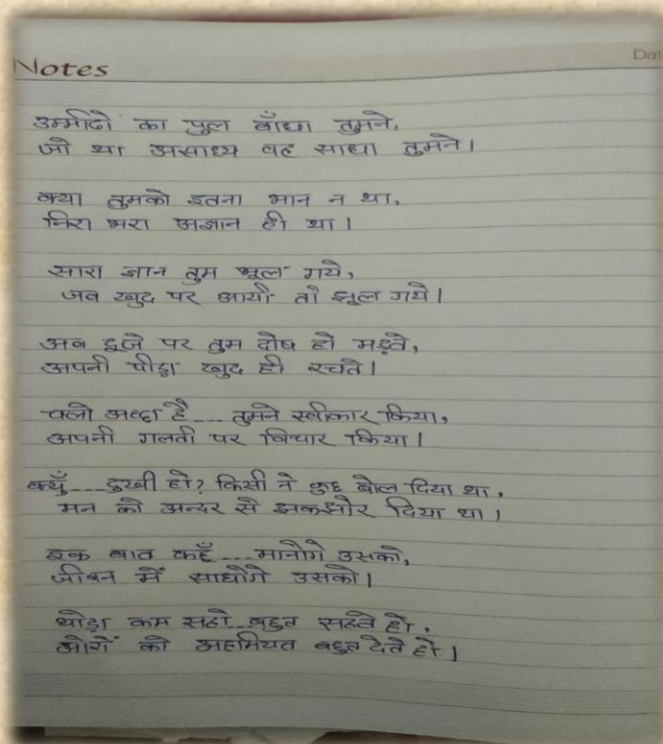 Notes
Dat
उम्मीदो का पुल बाँधा तुमने,
जो था असाध्य वह साधा तुमने।
क्या तुमको इतना भान न था,
निरा भरा अज्ञान ही था।
सारा ज्ञान तुम भूल गये,
जब खुद पर आयी तो झूल गये।
अब दूजे पर तुम दोष हो मढ़ते,
अपनी पीड़ा खुद ही रचते।
चलो अच्छा है... तुमने स्वीकार किया,
अपनी गलती पर विचार किया।
क्यूँ... दुखी हो? किसी ने कुछ बोल दिया था,
मन को अन्दर से झकझोर दिया था।
इक बात कहूँ... मानोगे उसको,
जीवन में साधोगे उसको।
थोड़ा कम सहो.. बहुत सहते हो,
ओरों को अहमियत बहुत देते हो।